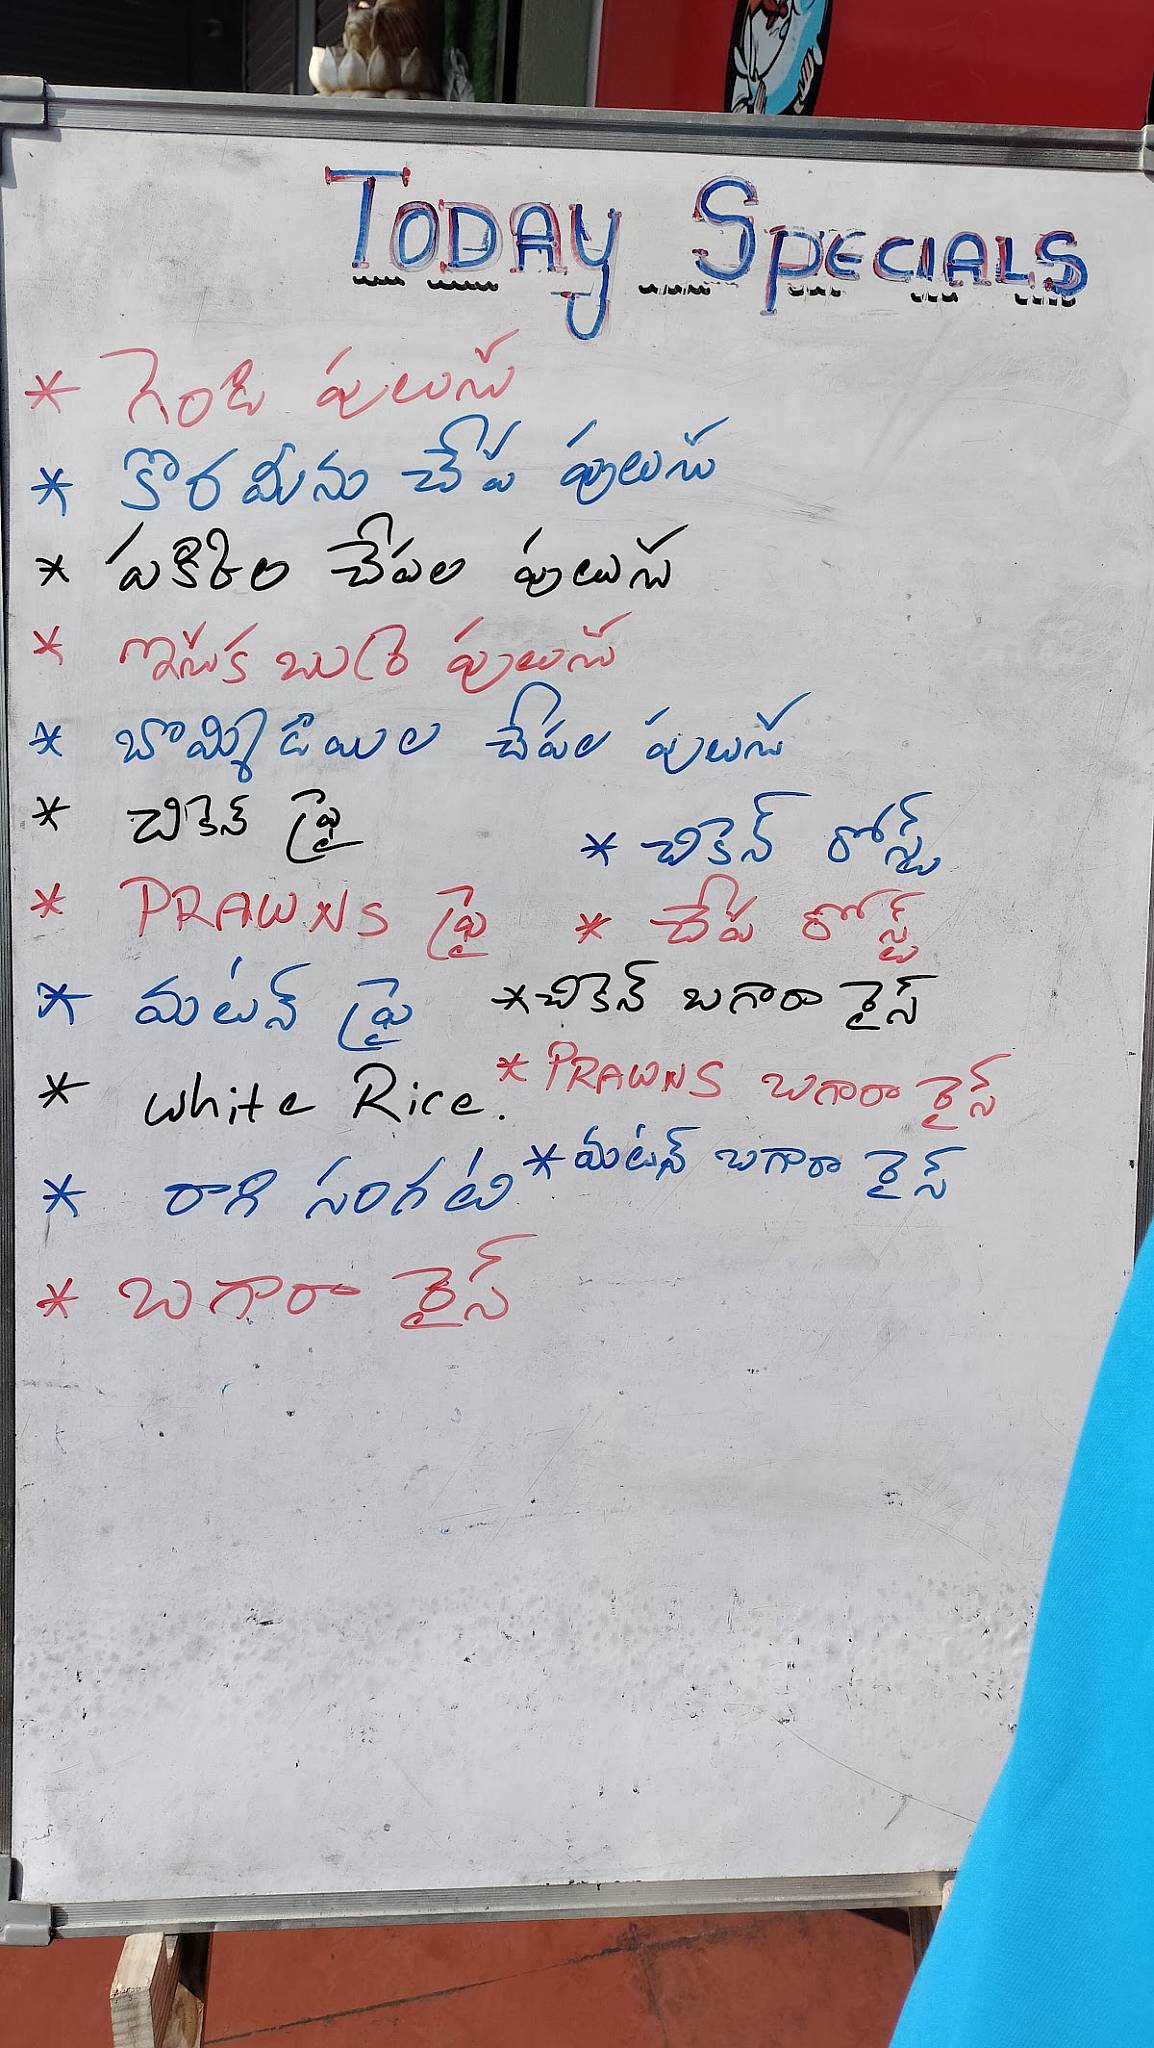 TODAY SPECIALS
* గెండి పులుసు
* కొరమీను చేప పులుసు
* పకికెల చేపల పులుసు
* ఇసుక బుర్ర పులుసు
* బొమ్మిడియల చేపల పులుసు
* చికెన్ ఫ్రై
* చికెన్ రోస్ట్
* PRAWNS ఫ్రై
* చేప రోస్ట్
* మటన్ ఫ్రై
* చికెన్ బగారా రైస్
* White Rice.
* PRAWNS బగారా రైస్
* రాగి సంగటి
* మటన్ బగారా రైస్
* బగారా రైస్